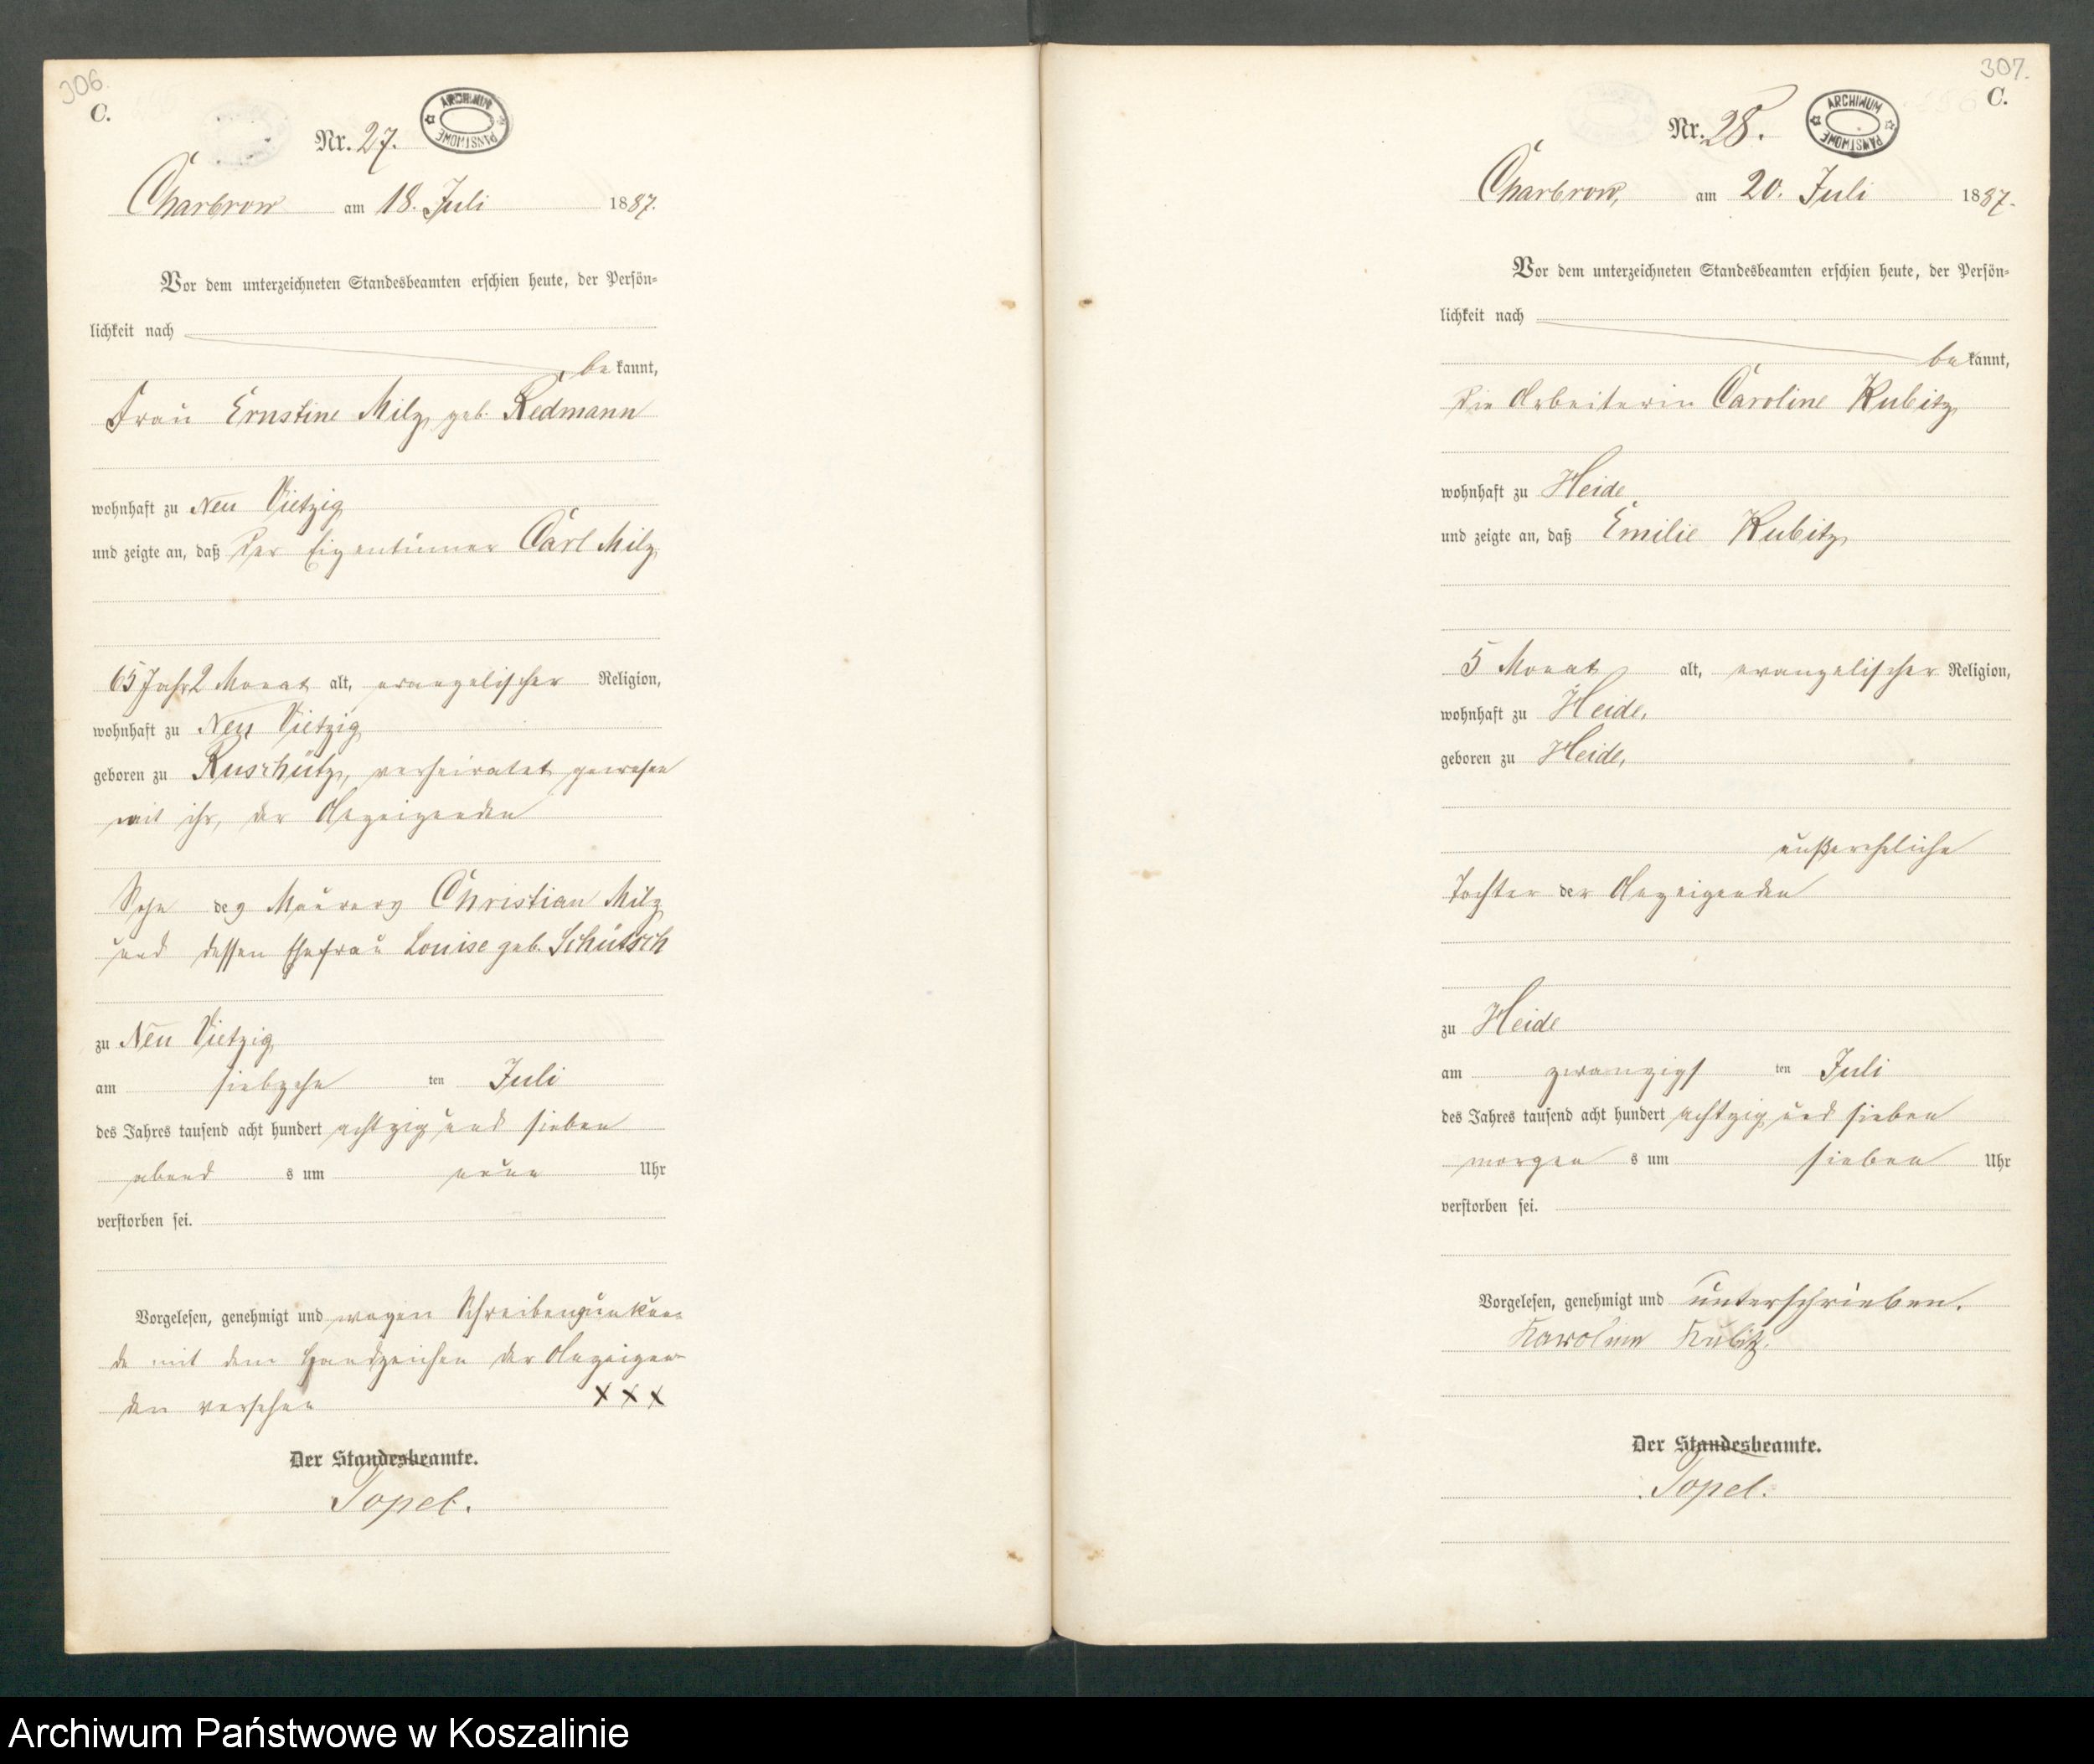 306.
C.
Nr. 27.
ARCHIWUM PAŃSTWOWE
Charbrow am 18. Juli 1887.
Vor dem unterzeichneten Standesbeamten erschien heute, der Persön=
lichkeit nach
be kannt,
Frau Ernstine Milz geb. Redmann
wohnhaft zu Neu Vietzig
und zeigte an, daß der Eigentümer Carl Milz,
65 Jahr 2 Monat alt, evangelischer Religion,
wohnhaft zu Neu Vietzig
geboren zu Ruschütz, verheiratet gewesen
mit ihr, der Anzeigenden
Sohn des Maurers Christian Milz
und dessen Ehefrau Louise geb. Schütsch
zu Neu Vietzig
am siebzehn ten Juli
des Jahres tausend acht hundert achtzig und sieben
abend s um neun Uhr
verstorben sei.
Vorgelesen, genehmigt und wegen Schreibensunkun=
de mit dem Handzeichen der Anzeigen=
den versehen XXX
Der Standesbeamte.
Topel.
307.
C.
Nr. 28.
ARCHIWUM PAŃSTWOWE
Charbrow, am 20. Juli 1887.
Vor dem unterzeichneten Standesbeamten erschien heute, der Persön=
lichkeit nach
be kannt,
die Arbeiterin Caroline Kubitz
wohnhaft zu Heide
und zeigte an, daß Emilie Kubitz,
5 Monat alt, evangelischer Religion,
wohnhaft zu Heide,
geboren zu Heide,
außereheliche
Tochter der Anzeigenden
zu Heide
am zwanzigs ten Juli
des Jahres tausend acht hundert achtzig und sieben
morgen s um sieben Uhr
verstorben sei.
Vorgelesen, genehmigt und unterschrieben.
Karoline Kubitz.
Der Standesbeamte.
Topel.
Archiwum Państwowe w Koszalinie